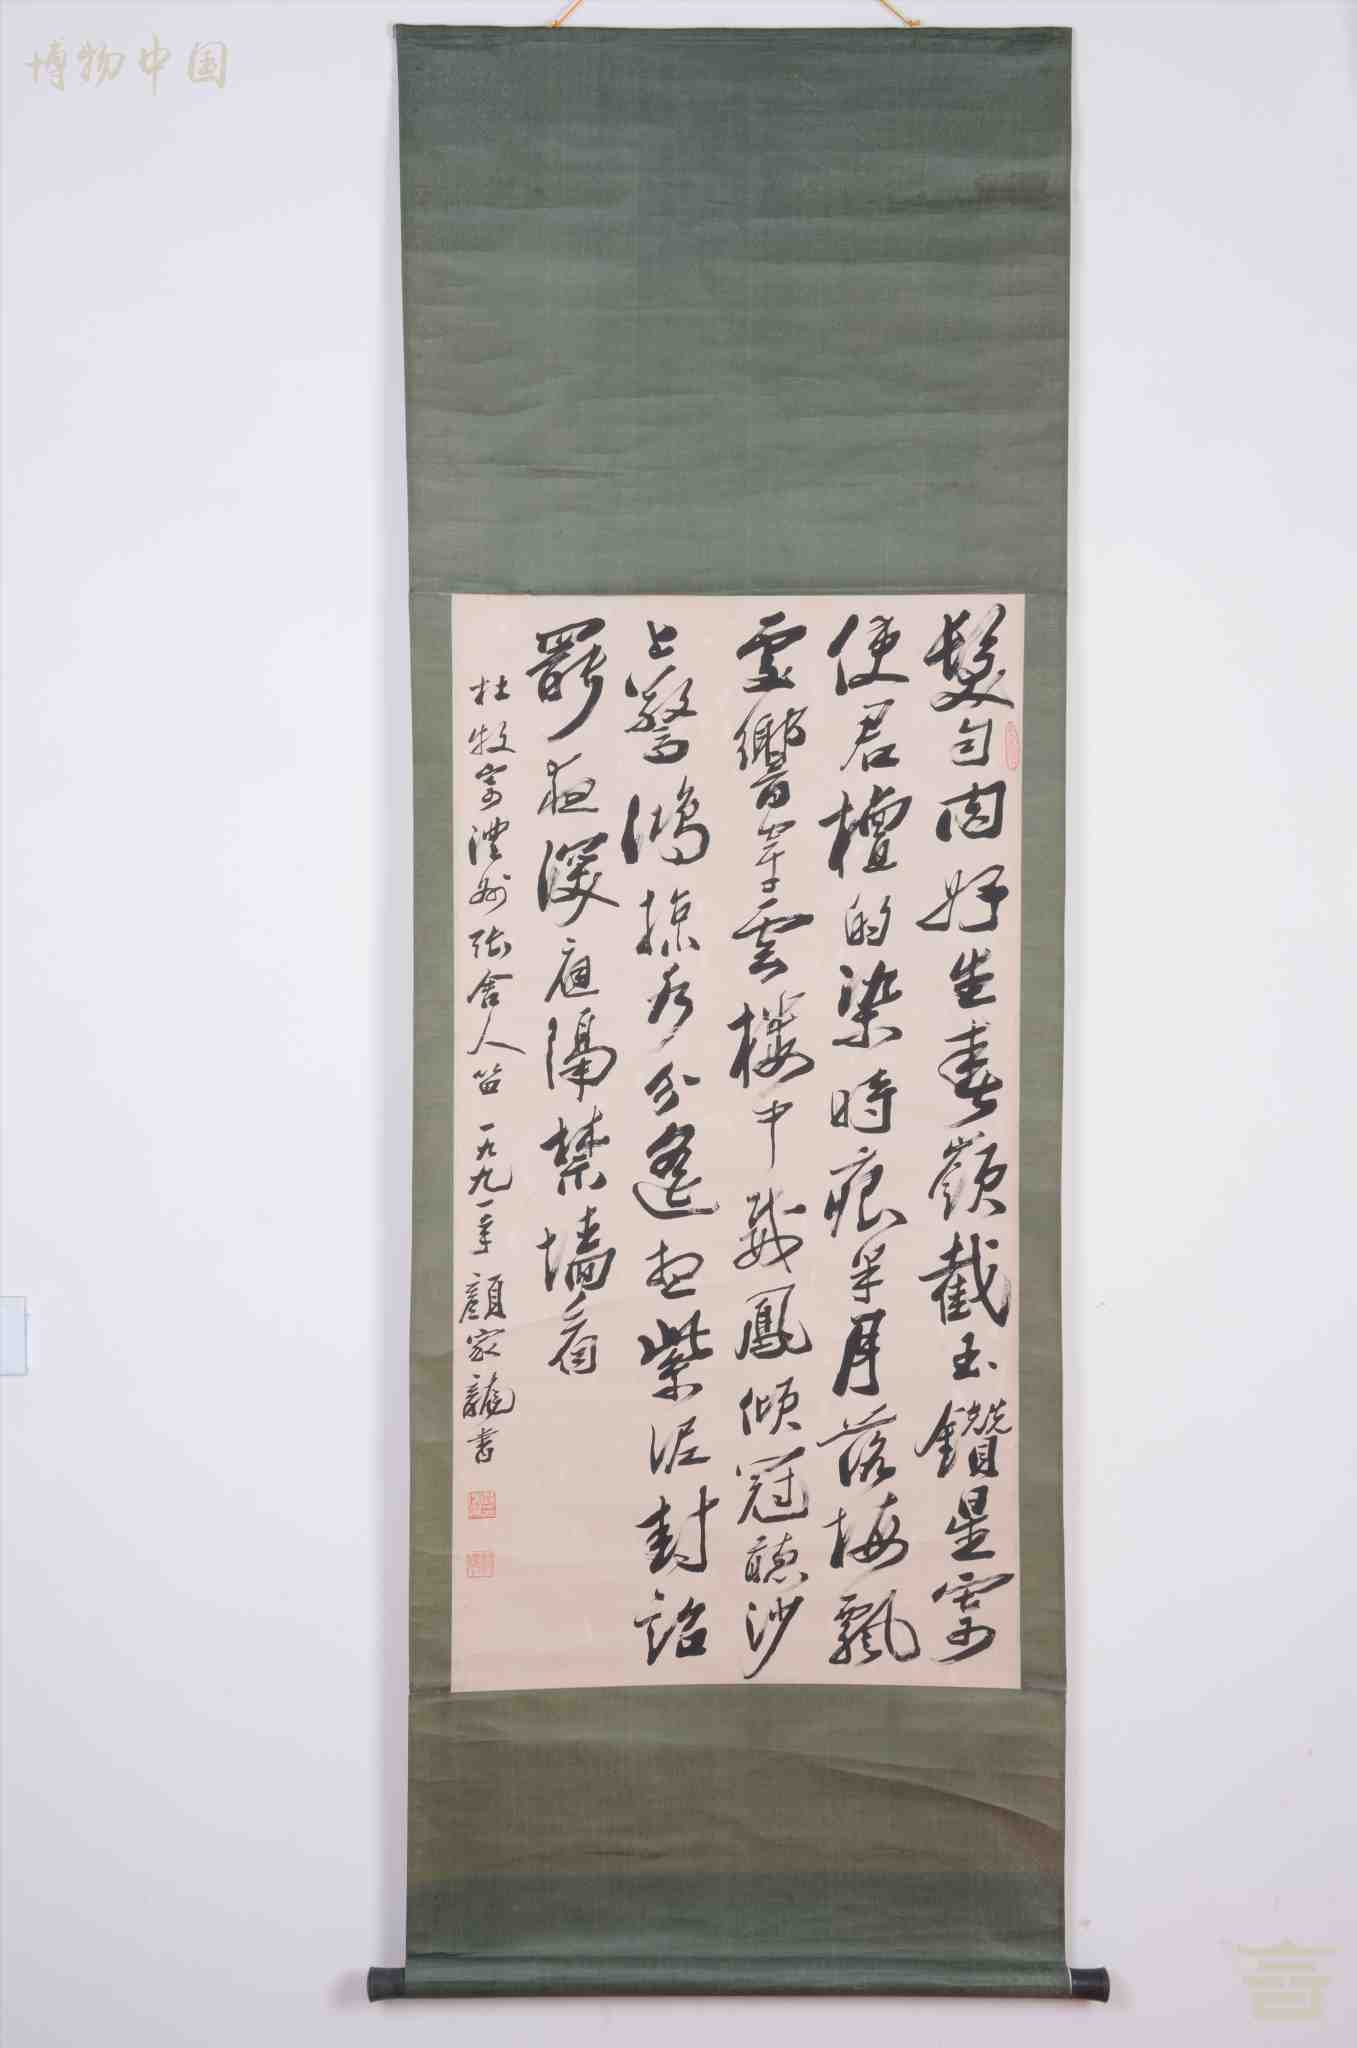 博物中国
髮匀肉好生春嶺截玉鑽星寄
使君檀的染時痕半月落梅飄
處響穿雲樓中威鳳傾冠聽沙
上驚鴻掠水分遥想紫泥封詔
罷夜深應隔禁墙看
杜牧寄澧州張舍人笛 一九九一年 顏家龍書